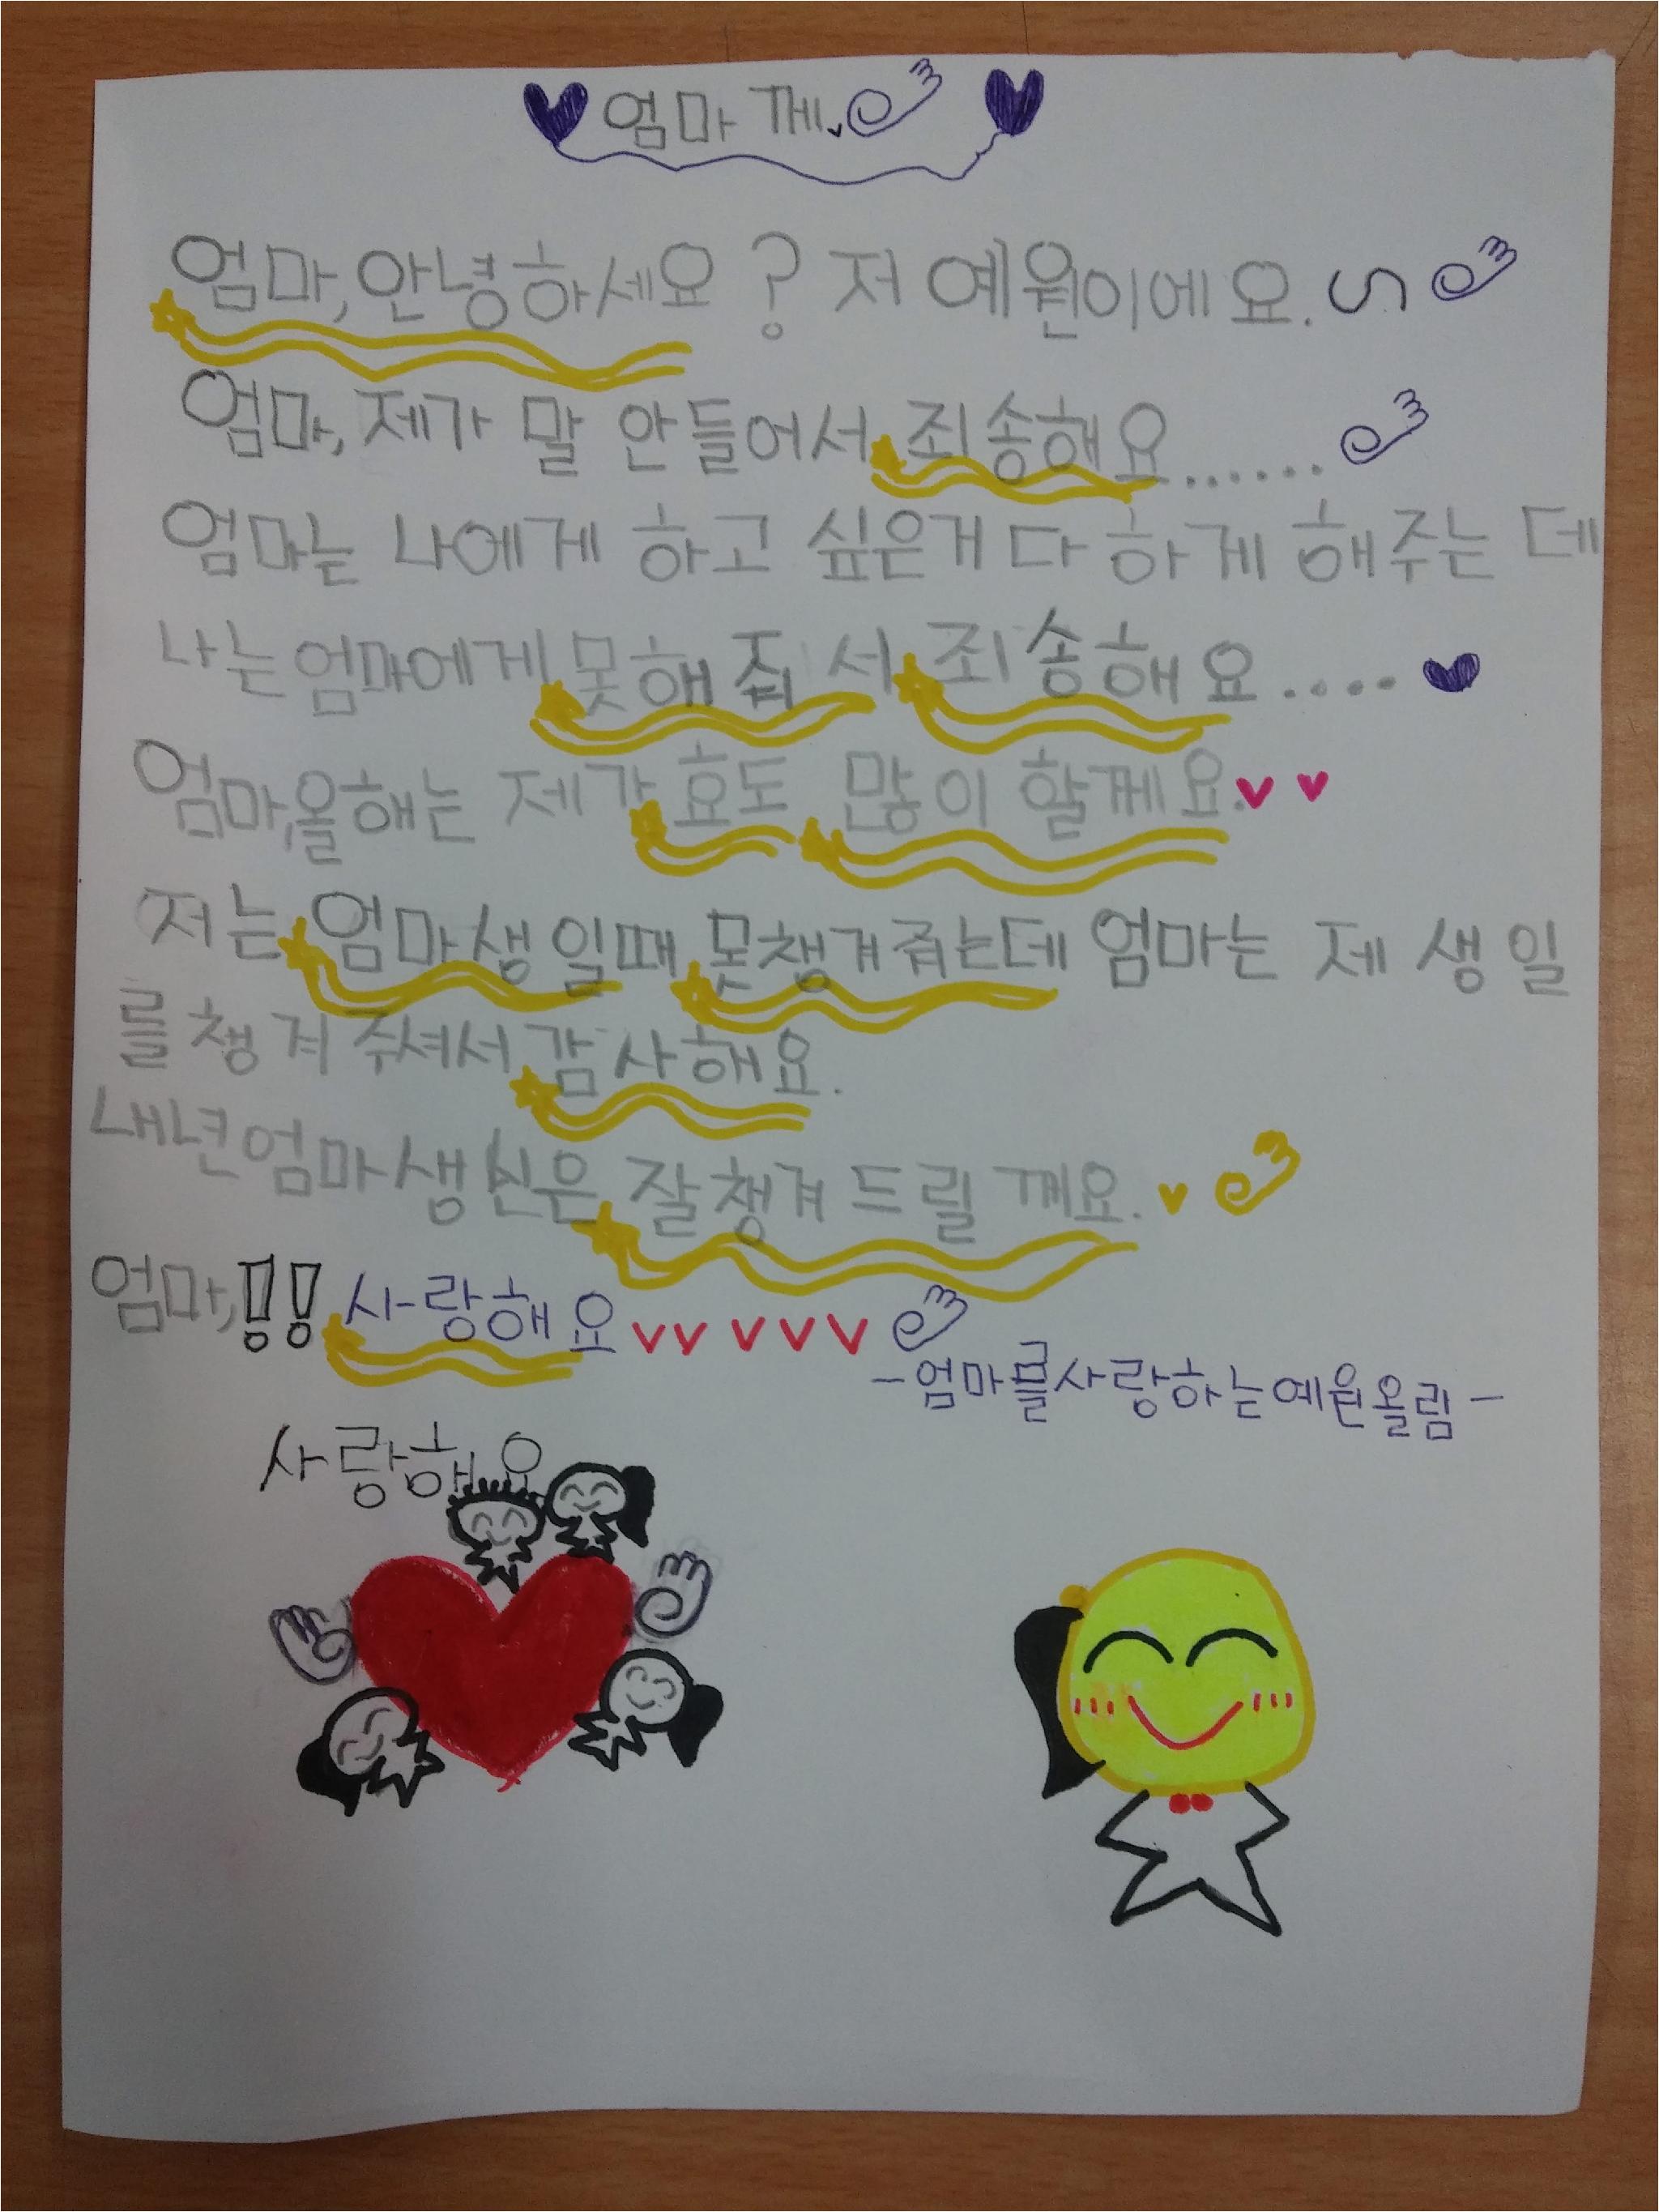 엄마께
엄마, 안녕하세요? 저 예원이에요.
엄마, 제가 말 안들어서 죄송해요......
엄마는 나에게 하고 싶은거 다 하게 해주는 데
나는 엄마에게 못해 줘서 죄송해요....
엄마, 올해는 제가 효도 많이 할께요.
저는 엄마 생일때 못챙겨줘는데 엄마는 제 생일
를 챙겨 주셔서 감사해요.
내년 엄마 생신은 잘 챙겨 드릴께요.
엄마,!! 사랑해요
-엄마를 사랑하는 예원올림-
사랑해요